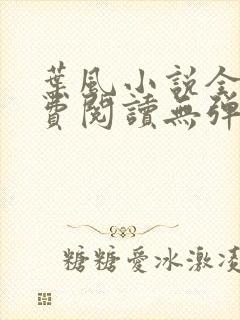 葉風小說全
費閱讀無彈
糖糖愛冰激凌